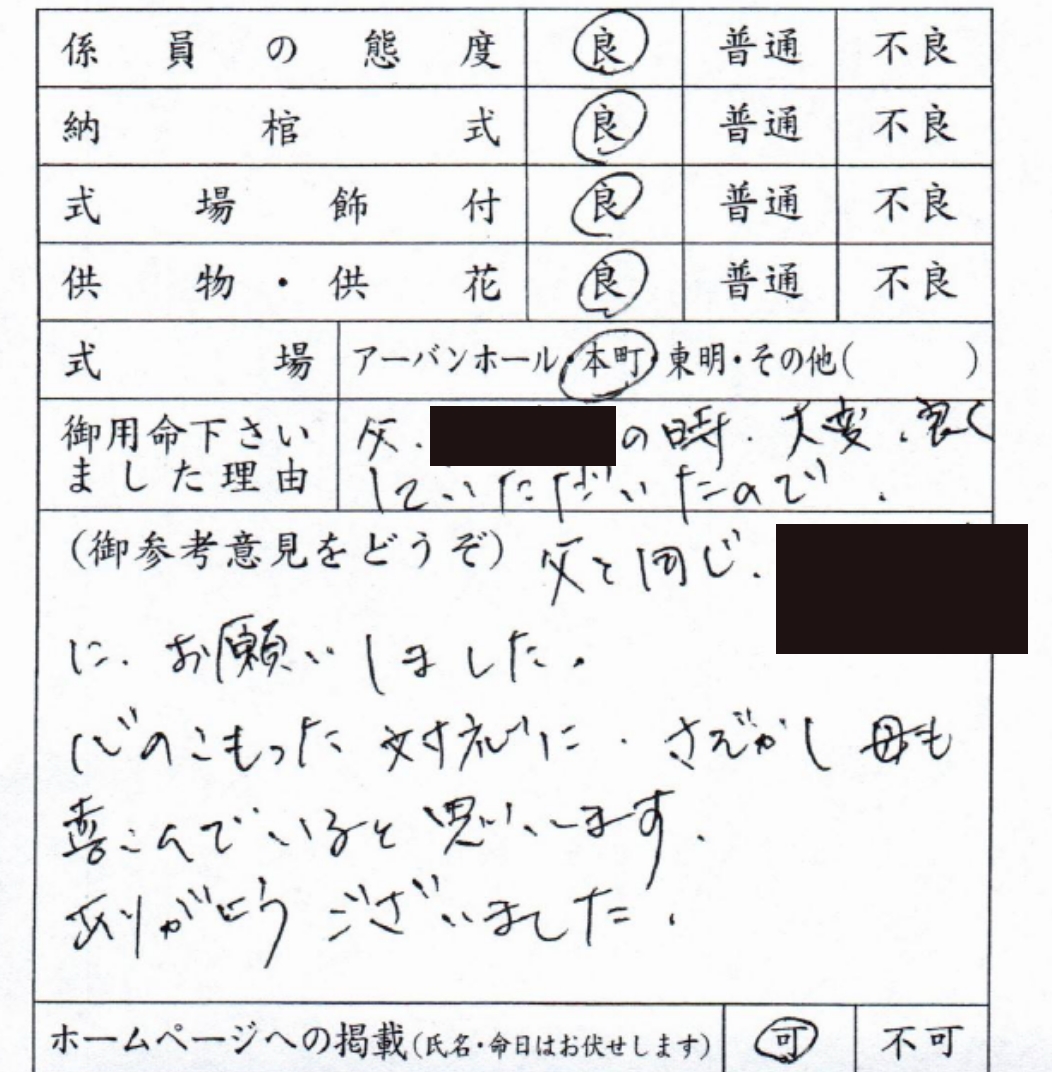 係員の態度 良 普通 不良
納棺式 良 普通 不良
式場飾付 良 普通 不良
供物・供花 良 普通 不良
式場 アーバンホール・本町・東明・その他( )
御用命下さいました理由
父、の時、大変、良く
していただいたので、
(御参考意見をどうぞ) 父と同じ、
に、お願いしました。
心のこもった対応に、さぞかし母も
喜こんでいると思います。
ありがとうございました。
ホームページへの掲載(氏名・命日はお伏せします) 可 不可